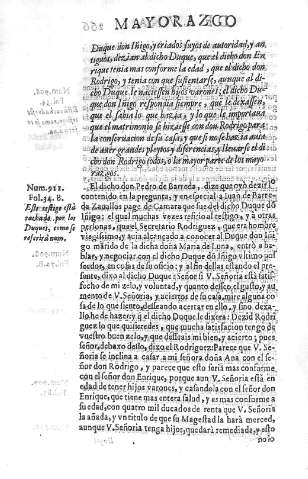 MAYORAZGO
Duque don Iñigo, y criados suyos de autoridad, y an-
tiguos, dezian al dicho Duque, que el dicho don En-
rique tenia mas conforme la edad, que el dicho don
Rodrigo, y tenia con que sustentarse, aunque al di-
cho Duque le naciessen hijos varones: el dicho Du-
que don Iñigo respondia siempre, que le dexassen,
que el sabia lo que hazia, y lo que le importaua
que el matrimonio se hiziesse con don Rodrigo para
la conseruacion de su casa, y que si no se hazia auia
de auer grandes pleytos y diferencias, y lleuarse el di-
cho don Rodrigo todos, o la mayor parte de los mayo
razgos.
Num.911.
Fol.34.B.
Este testigo está
tachado por los
Duques, como se
referirà num.
El dicho don Pedro de Barreda, dize que oyò dezir lo
contenido en la pregunta, y en especial a Iuan de Barre-
da Zauallos page de Camara que fue del dicho Duque dõ
Iñigo; el qual muchas vezes refirio al testigo, y a otras
personas, que el Secretario Rodriguez, que era hombre
viejissimo, y auia alcançado a conocer al Duque don Iñ-
igo marido de la dicha doña Maria de Luna, entrò a ha-
blar, y negociar con el dicho Duque dõ Iñigo
sseedor, en cosas de su oficio; y al fin dellas estando el pre-
sente, dixo al dicho Duque: Señor si V. Señoria està satis-
fecho de mi zelo, y voluntad, y quanto desseo el gusto, y au-
mento de V. Señoria, y aciertos de su casa, mire alguna co-
sa de lo que siento, desseando acertar en ello, y
le he de hazer: y el dicho Duque le dixera: Dezid Rodri-
guez lo que quisieredes, que mucha satisfacion tengo de
vuestro buen zelo, y que dessais mi bien, y acierto; pues
señor, debaxo desso, el Rodriguez: Parece que V. Señoria
se inclina a casar a mi señora doña Ana con el se-
ñor don Rodrigo, y parece que esto seria mas conforme
con el señor don Enrique, porque aun V. Señoria està en
edad de tener hijos varones, y casandola con el señor don
Enrique, que tiene mas entera salud, y es mas conforme a
su edad, con quatro mil ducados de renta que V. Señoria
la añada, y vn titulo de que su Magestad la harà merced,
aunque V. Señoria tenga hijos, quedarà remediada, y esto